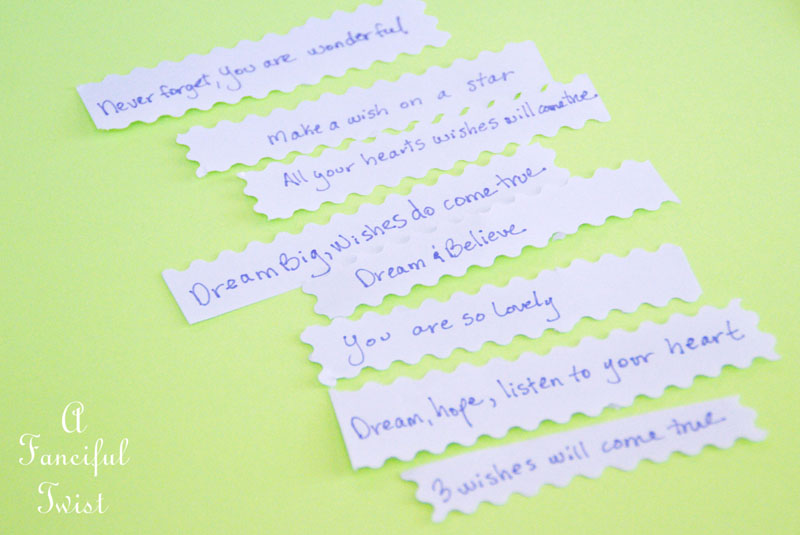 Never forget, You are wonderful
Make a wish on a star
All your hearts wishes will come true.
Dream Big, Wishes do come true
Dream & Believe
You are so lovely
Dream, hope, listen to your heart
3 wishes will come true
A
Fanciful
Twist